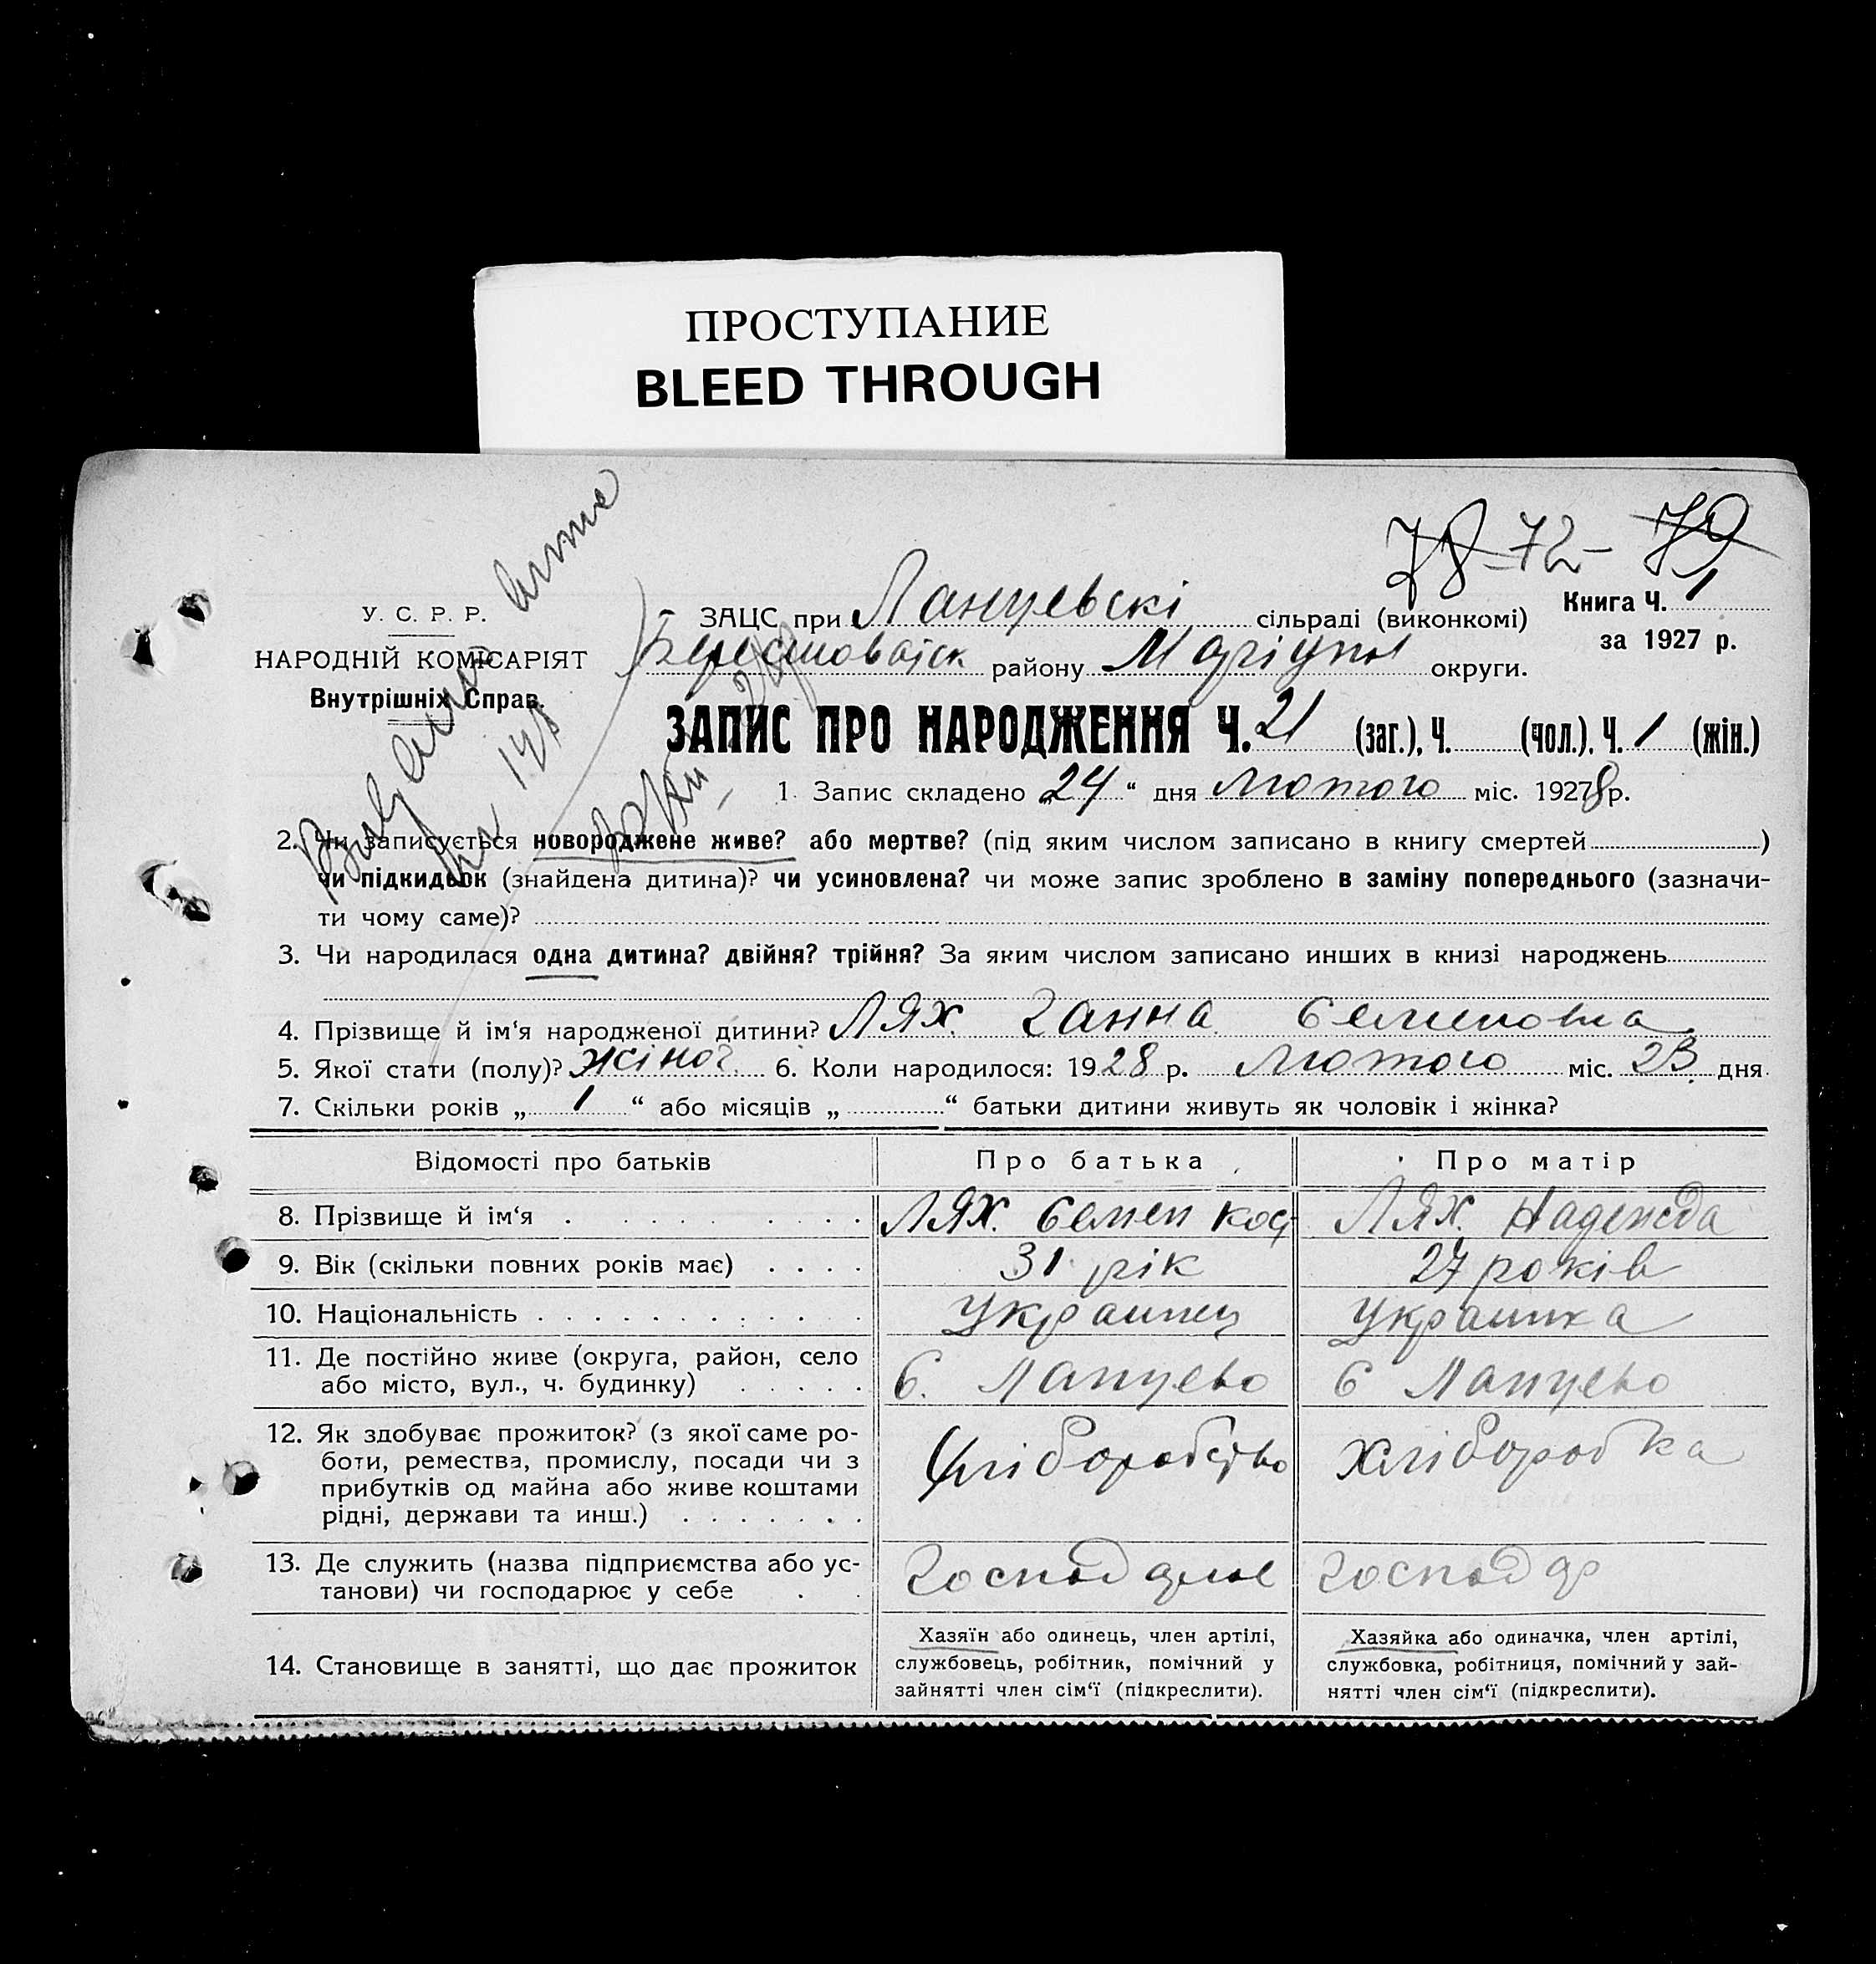 ПРОСТУПАНИЕ
BLEED THROUGH
78 72- 79
У. С. Р. Р.
НАРОДНІЙ КОМІСАРІЯТ
Внутрішніх Справ.
ЗАЦС при Ланцевскі сільраді (виконкомі)
району Маріупол округи.
Книга Ч. 1
за 1927 р.
ЗАПИС ПРО НАРОДЖЕННЯ Ч. 21 (заг.), Ч. (чол.), Ч. 1 (жін.)
1. Запис складено „24“ дня Лютого міс. 1928 р.
2. Чи записується новороджене живе? або мертве? (під яким числом записано в книгу смертей)
чи підкидьок (знайдена дитина)? чи усиновлена? чи може запис зроблено в заміну попереднього (зазначи-
ти чому саме)?
3. Чи народилася одна дитина? двійня? трійня? За яким числом записано инших в книзі народжень
4. Прізвище й ім‘я народженої дитини? Лях. Ганна Семеновна
5. Якої стати (полу)? жіноч. 6. Коли народилося: 1928 р. Лютого міс. 23 дня
7. Скільки років „1“ або місяців „“ батьки дитини живуть як чоловік і жінка?
Відомості про батьків Про батька Про матір
8. Прізвище й ім‘я Лях. Семен Кос Лях. Надежда
9. Вік (скільки повних років має) 31 рік 27 років
10. Національність Украинец Украинка
11. Де постійно живе (округа, район, село
або місто, вул., ч. будинку) С. Ланцево С Ланцево
12. Як здобуває прожиток? (з якої саме ро-
боти, ремества, промислу, посади чи з
прибутків од майна або живе коштами
рідні, держави та инш.) Хліборобство Хліборобка
13. Де служить (назва підприємства або ус-
танови) чи господарює у себе Господар
14. Становище в занятті, що дає прожиток
Хазяїн або одинець, член артілі,
службовець, робітник, помічний у
зайнятті член сім‘ї (підкреслити).
Хазяйка або одиначка, член артілі,
службовка, робітниця, помічний у зай-
нятті член сім‘ї (підкреслити).